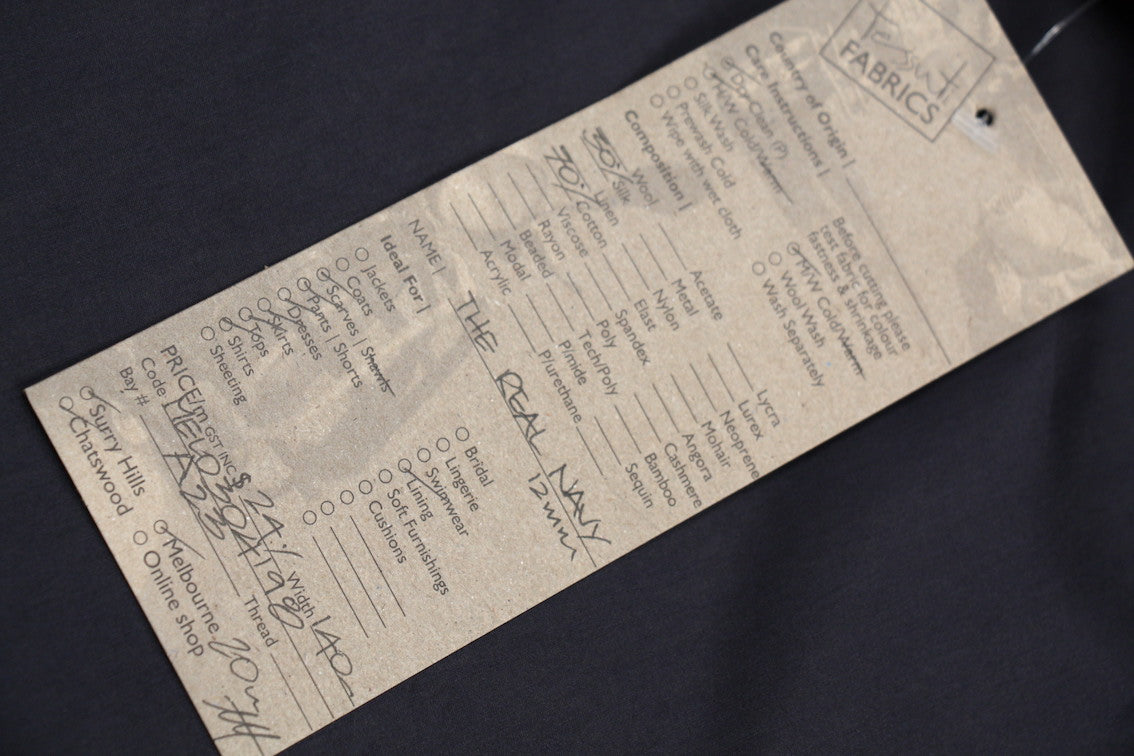 tessuti
FABRICS
Country of Origin |
Care Instructions |
Dry Clean (P)
H/W Cold/Warm
Silk Wash
Prewash Cold
Wipe with wet cloth
Before cutting please
test fabric for colour
fastness & shrinkage
M/W Cold/Warm
Wool Wash
Wash Separately
Composition |
Wool
30% Silk
Linen
70% Cotton
Viscose
Rayon
Beaded
Modal
Acrylic
Acetate
Metal
Nylon
Elast
Spandex
Poly
Tech/Poly
P/mide
P/urethane
Lycra
Lurex
Neoprene
Mohair
Angora
Cashmere
Bamboo
Sequin
NAME | THE REAL NAVY
12mm
Ideal For |
Jackets
Coats
Scarves | Shawls
Pants | Shorts
Dresses
Skirts
Tops
Shirts
Sheeting
Bridal
Lingerie
Swimwear
Lining
Soft Furnishings
Cushions
PRICE/m GST INC $24.- Width 140
Code
Bay # A23 Thread
Surry Hills
Chatswood
Melbourne 20m
Online shop